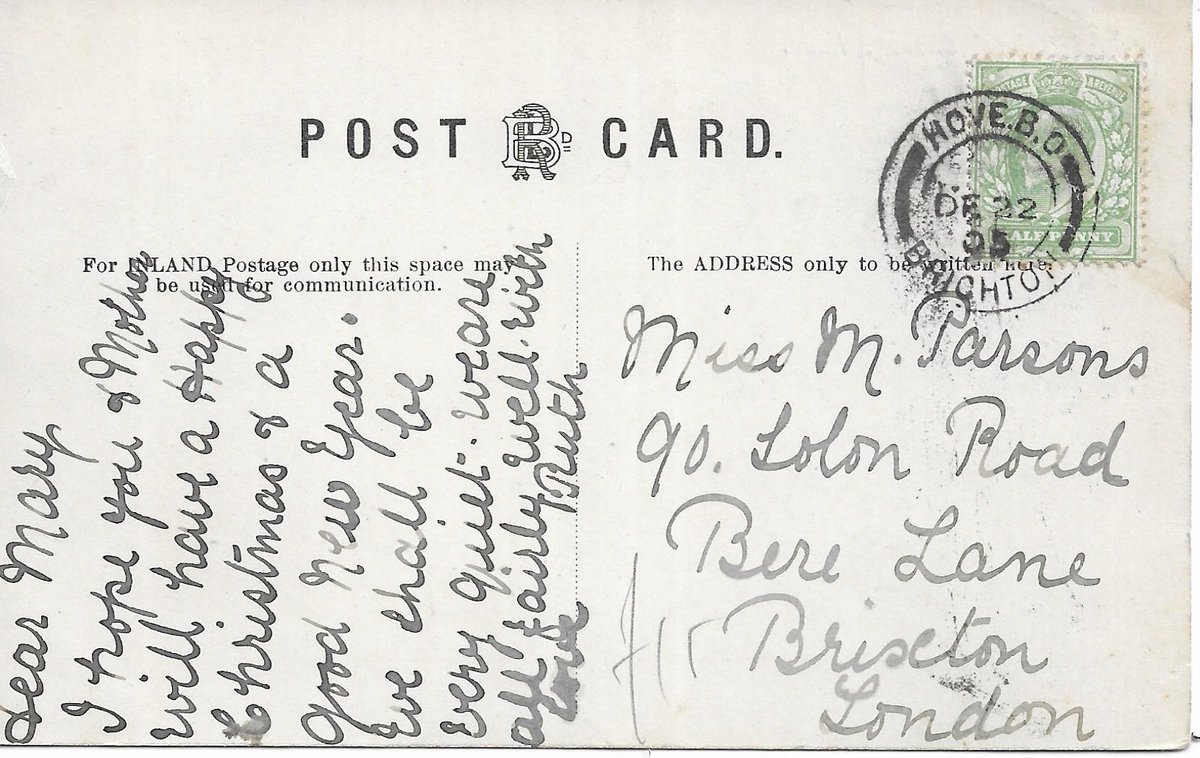 POST CARD.
For INLAND Postage only this space may
be used for communication.
The ADDRESS only to be written here.
HOVE.B.O.
DE 22
05
BRIGHTON
POSTAGE & REVENUE
HALFPENNY
Dear Mary
I hope you & Mother
will have a Happy
Christmas & a
Good New Year.
We shall be
very quiet. We are
all fairly well. With
love Ruth
Miss M. Parsons
90. Solon Road
Bere Lane
Brixton
London